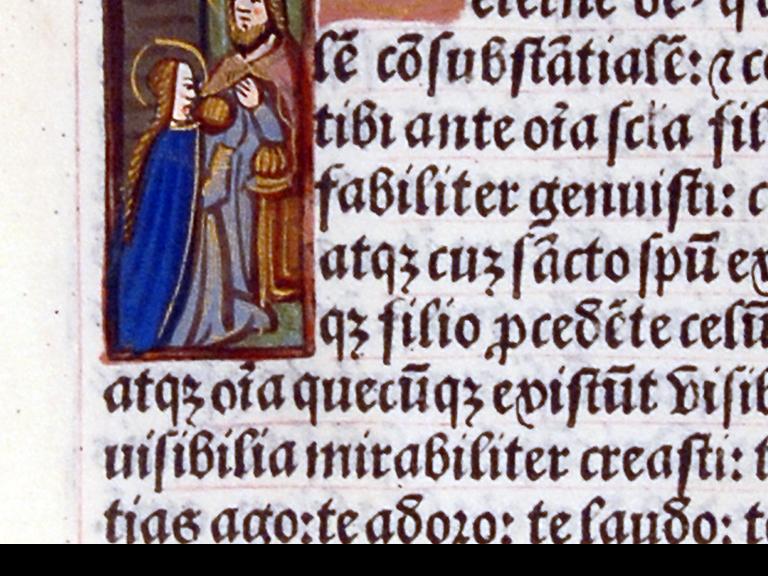 eterne de⁹ q
lē cōsubstātialē: ⁊ c
tibi ante oīa scīa fil
fabiliter genuisti: c
atqꝫ cuꝫ sācto spū ex
qꝫ filio ꝓcedēte celū
atqꝫ oīa quecūqꝫ existūt visib
uisibilia mirabiliter creasti: t
tias ago: te adoro: te laudo: t